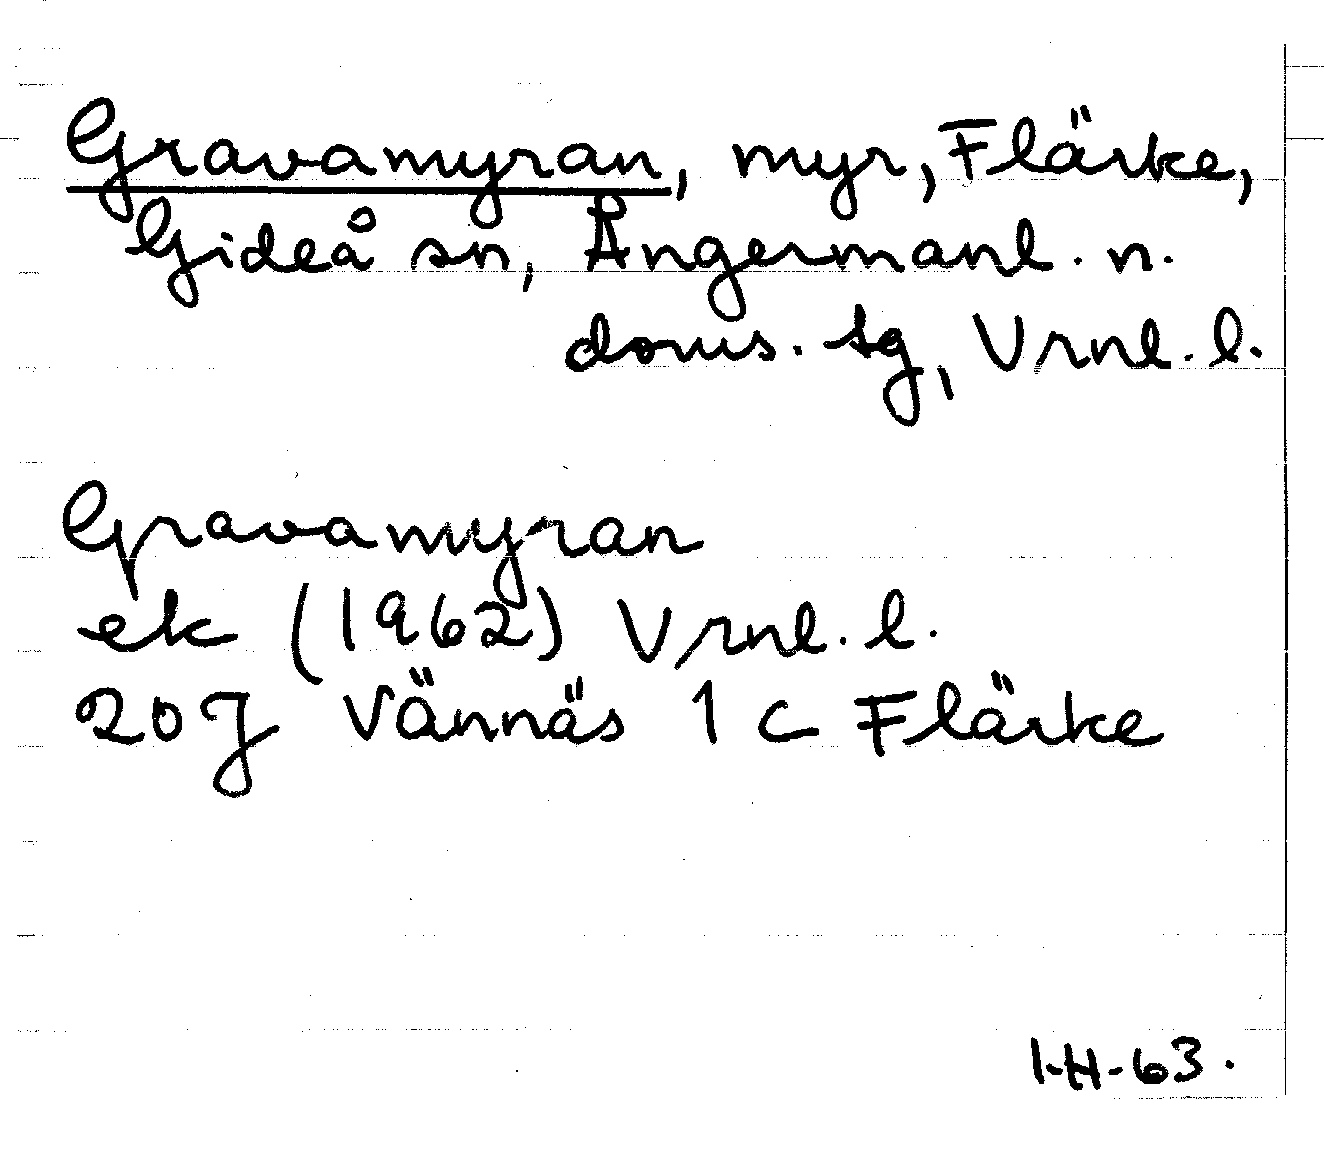 Gravamyran, myr, Flärke,
Gideå sn, Ångermanl. n.
doms. sg, Vrnl. l.
Gravamyran
ek (1962) Vrnl. l.
20J Vännäs 1 c Flärke
I-H-63.